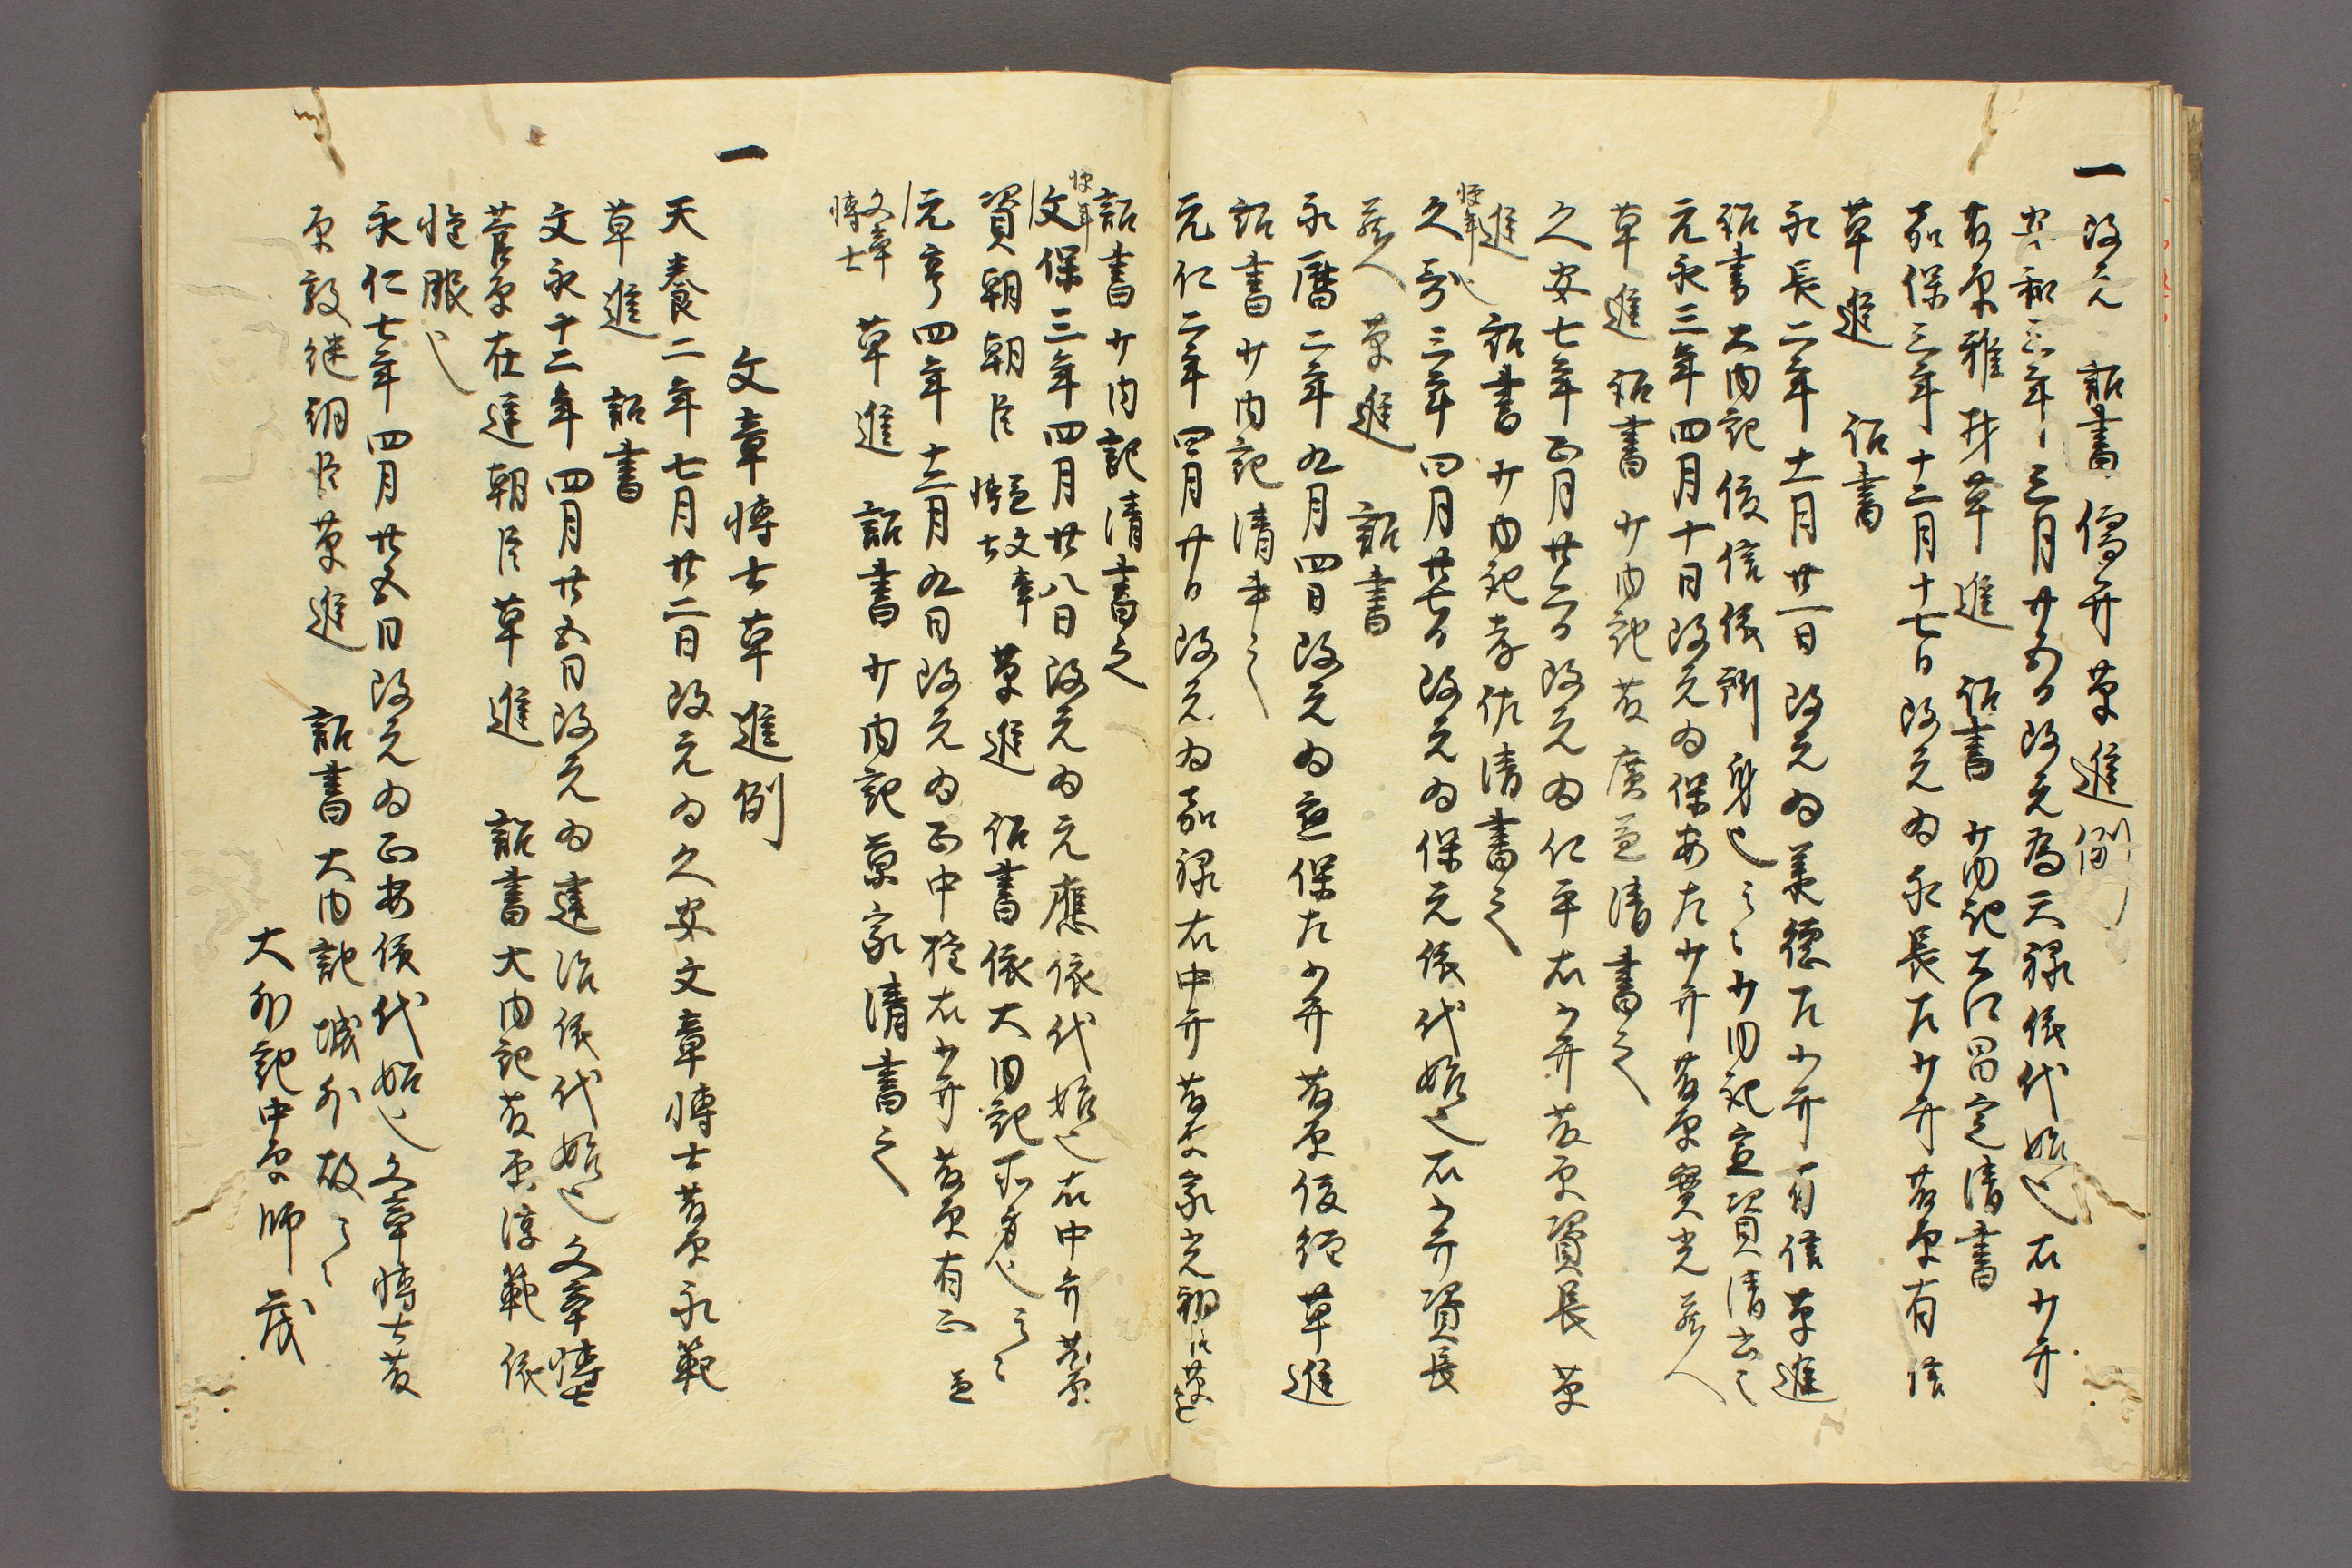 一 改元 詔書儒弁草進例
安和三年三月廿五日改元為天禄依代始也右少弁
藤原雅材草進 詔書 少内記大江昌言清書
嘉保三年十二月十七日改元為永長左少弁藤原有信
草進 詔書
永長二年十一月廿一日改元為承徳左少弁有信草進
詔書大内記俊信依所身也云々少内記宣資清書云々
元永三年四月十日改元為保安左少弁藤原実光兼人
草進詔書少内記藤広兼清書之
久安七年正月廿六日改元為仁平右少弁藤原資長草
進 詔書少内記孝佐清書之
久寿三年四月廿七日改元為保元依代始也右少弁資長
兼人 草進 詔書
永暦二年九月四日改元為応保左少弁藤原俊経草進
詔書少内記清書之
元仁二年四月廿日改元為嘉禄右中弁藤原家光朝臣草進
詔書少内記清書之
文保三年四月廿八日改元為元應依代始也右中弁藤原
資朝朝臣 兼文章博士 草進 詔書依大内記所労也云々
元亨四年十二月九日改元為正中権右少弁藤原有正 兼
文章博士 草進 詔書少内記草家清書之
一 文章博士草進例
天養二年七月廿二日改元為久安文章博士藤原永範
草進 詔書
文永十二年四月廿五日改元為建治依代始也文章博士
菅原在匡朝臣草進 詔書大内記藤原淳範依
怹服也
永仁七年四月廿五日改元為正安依代始也文章博士藤
原敦継朝臣草進 詔書大内記城外故云々
大外記中原師茂